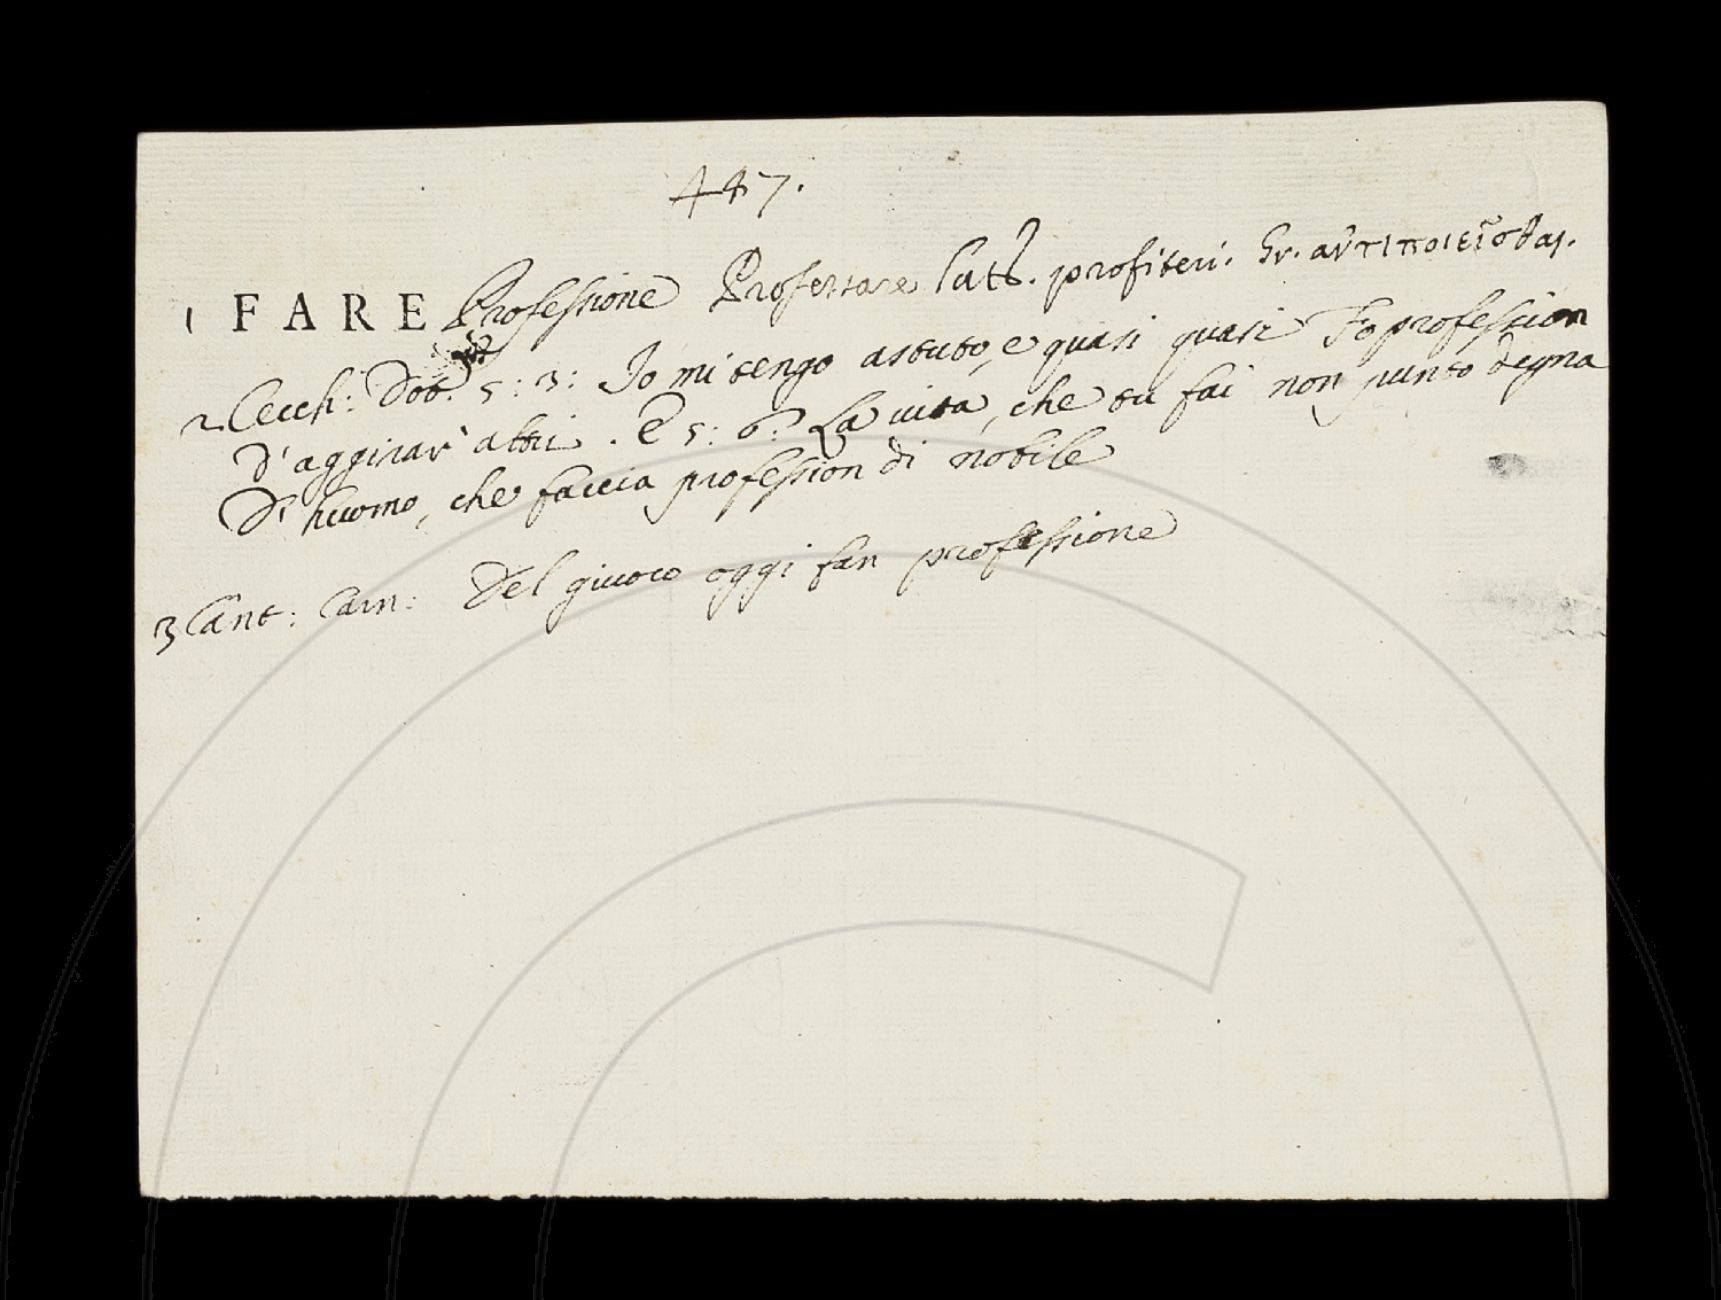 447.
1 FARE Professione Professare latt. profiteri. Gr. αντιποιεῖσθαι.
2 Cecch: Dot. 5: 3: Io mi tengo astuto, e quasi quasi Fo profession
D' aggirar' altri. E 5: 6: La vita, che tu fai non punto degna
D' huomo, che faccia profession di nobile
3 Cant: Carn: Del giuoco oggi fan professione